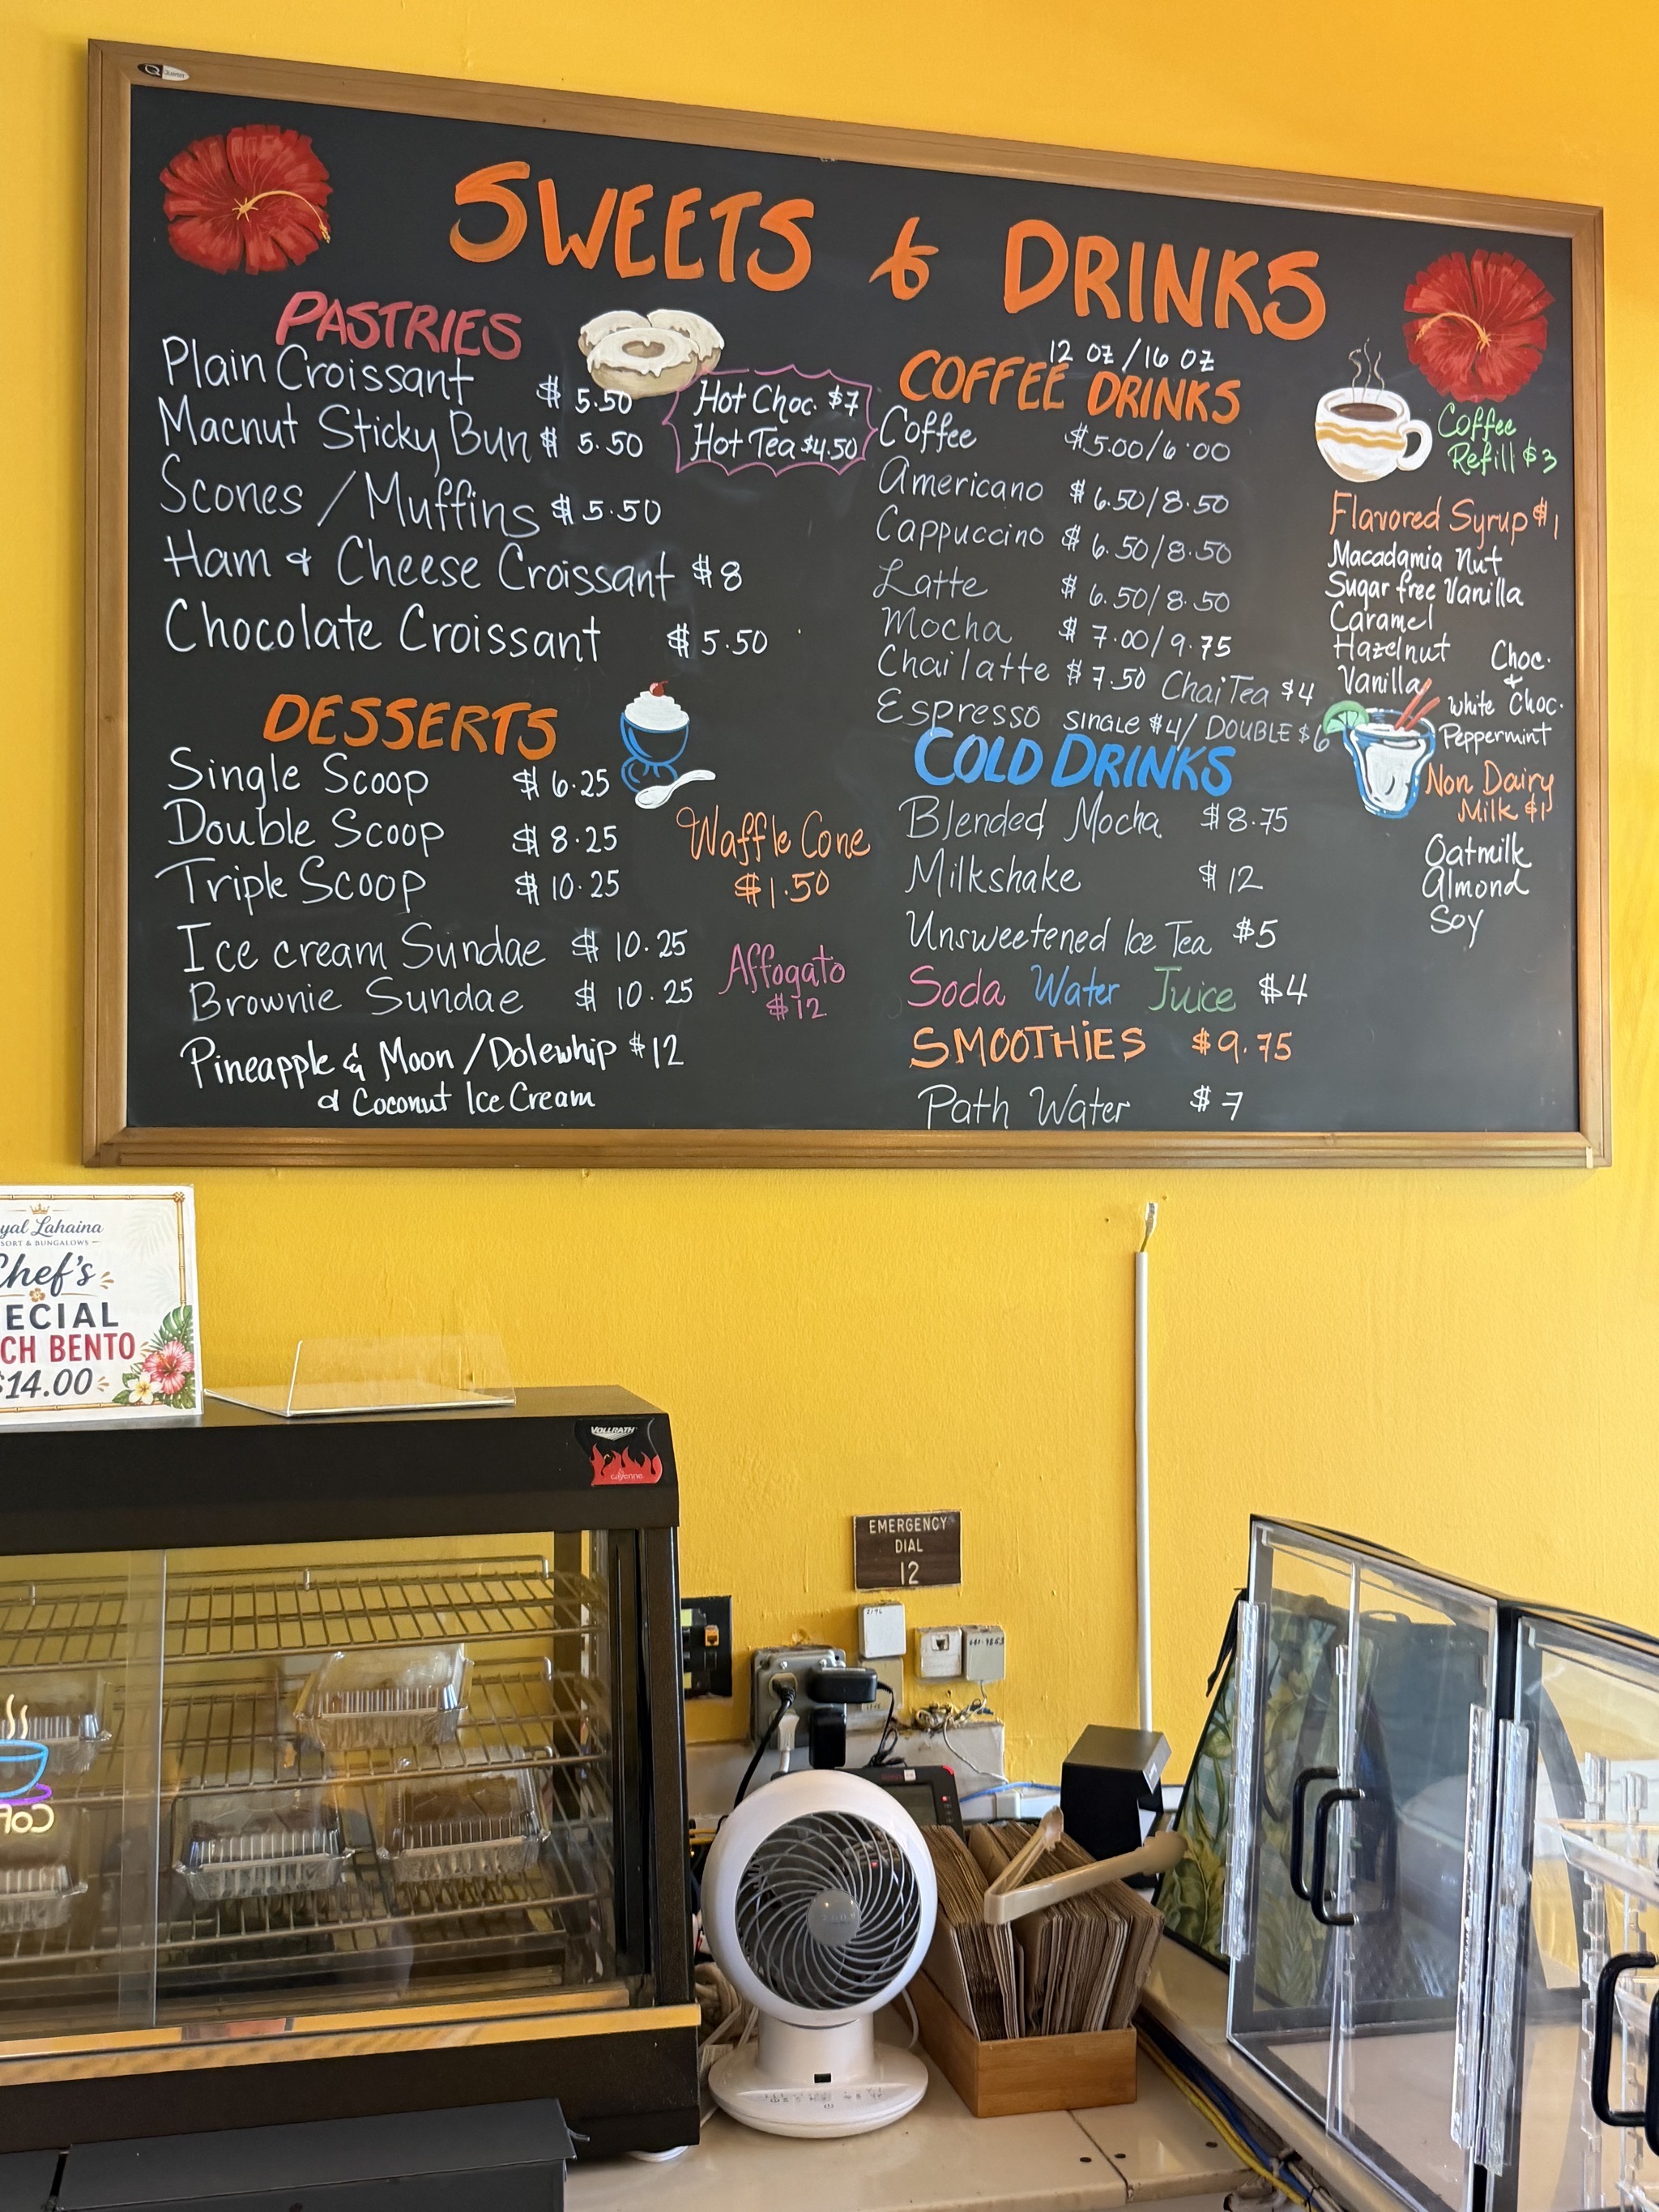 SWEETS & DRINKS
PASTRIES
Plain Croissant $5.50
Macnut Sticky Bun $5.50
Scones / Muffins $5.50
Ham & Cheese Croissant $8
Chocolate Croissant $5.50
Hot Choc. $7
Hot Tea $4.50
DESSERTS
Single Scoop $6.25
Double Scoop $8.25
Triple Scoop $10.25
Ice cream Sundae $10.25
Brownie Sundae $10.25
Pineapple & Moon / Dolewhip $12
& Coconut Ice Cream
Waffle Cone
$1.50
Affogato
$12
12 OZ / 16 OZ
COFFEE DRINKS
Coffee $5.00/6.00
Americano $6.50/8.50
Cappuccino $6.50/8.50
Latte $6.50/8.50
Mocha $7.00/9.75
Chai latte $7.50 Chai Tea $4
Espresso SINGLE $4/ DOUBLE $6
COLD DRINKS
Blended Mocha $8.75
Milkshake $12
Unsweetened Ice Tea $5
Soda Water Juice $4
SMOOTHIES $9.75
Path Water $7
Coffee
Refill $3
Flavored Syrup $1
Macadamia Nut
Sugar free Vanilla
Caramel
Hazelnut
Vanilla
Choc.
&
White Choc.
Peppermint
Non Dairy
Milk $1
Oatmilk
Almond
Soy
yal Lahaina
SORT & BUNGALOWS
Chef's
ECIAL
CH BENTO
$14.00
VOLLRATH
cayenne
EMERGENCY
DIAL
12